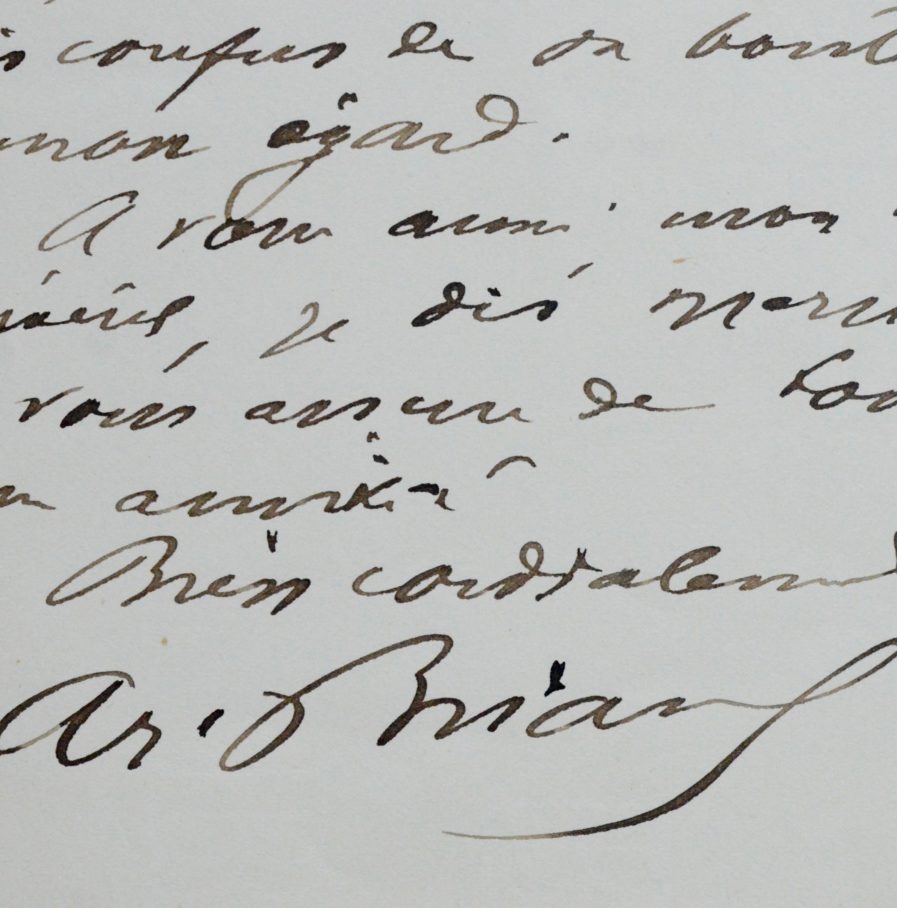 is confus de sa bont
mon égard.
A vous aussi, mon
général, je dis merci
vous assure de tou
amitié
Bien cordialement
Ar. Briand